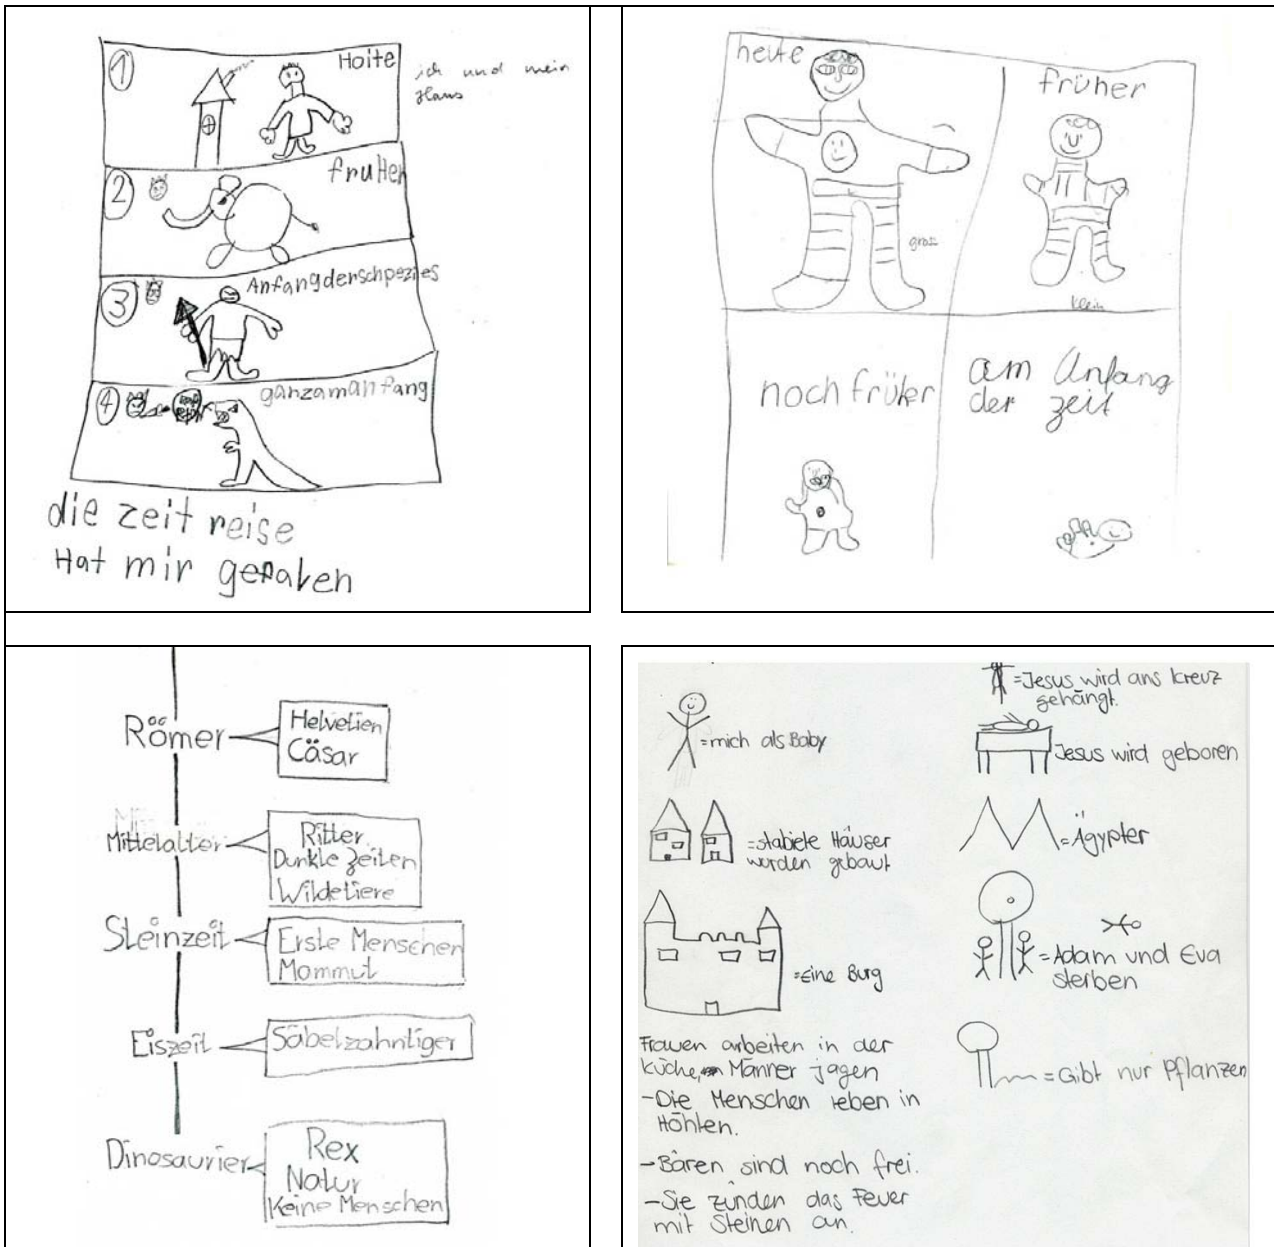 1
Hoite
ich und mein
Haus
2
fruHer
3
Anfangderschpezies
4
ganzamanfang
die zeit reise
Hat mir gefalen
heute
früher
gross
klein
noch früher
am Anfang
der zeit
Römer
Helvetien
Cäsar
Mittelalter
Ritter
Dunkle Zeiten
Wildetiere
Steinzeit
Erste Menschen
Mommut
Eiszeit
Säbelzahntiger
Dinosaurier
Rex
Natur
Keine Menschen
=mich als Baby
=stabiele Häuser
wurden gebaut
=Eine Burg
Frauen arbeiten in der
Küche, Männer jagen
-Die Menschen leben in
Höhlen.
-Bären sind noch frei.
-Sie zünden das Feuer
mit Steinen an.
=Jesus wird ans kreuz
gehängt.
Jesus wird geboren
=Ägypter
=Adam und Eva
sterben
=Gibt nur Pflanzen